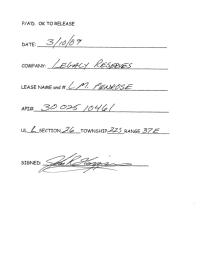 P/A'D. OK TO RELEASE
DATE: 3/10/09
COMPANY: LEGACY RESERVES
LEASE NAME and #: L.M. PENROSE
API# 30 025 10461
UL L SECTION 26 TOWNSHIP 22S RANGE 37E
SIGNED: